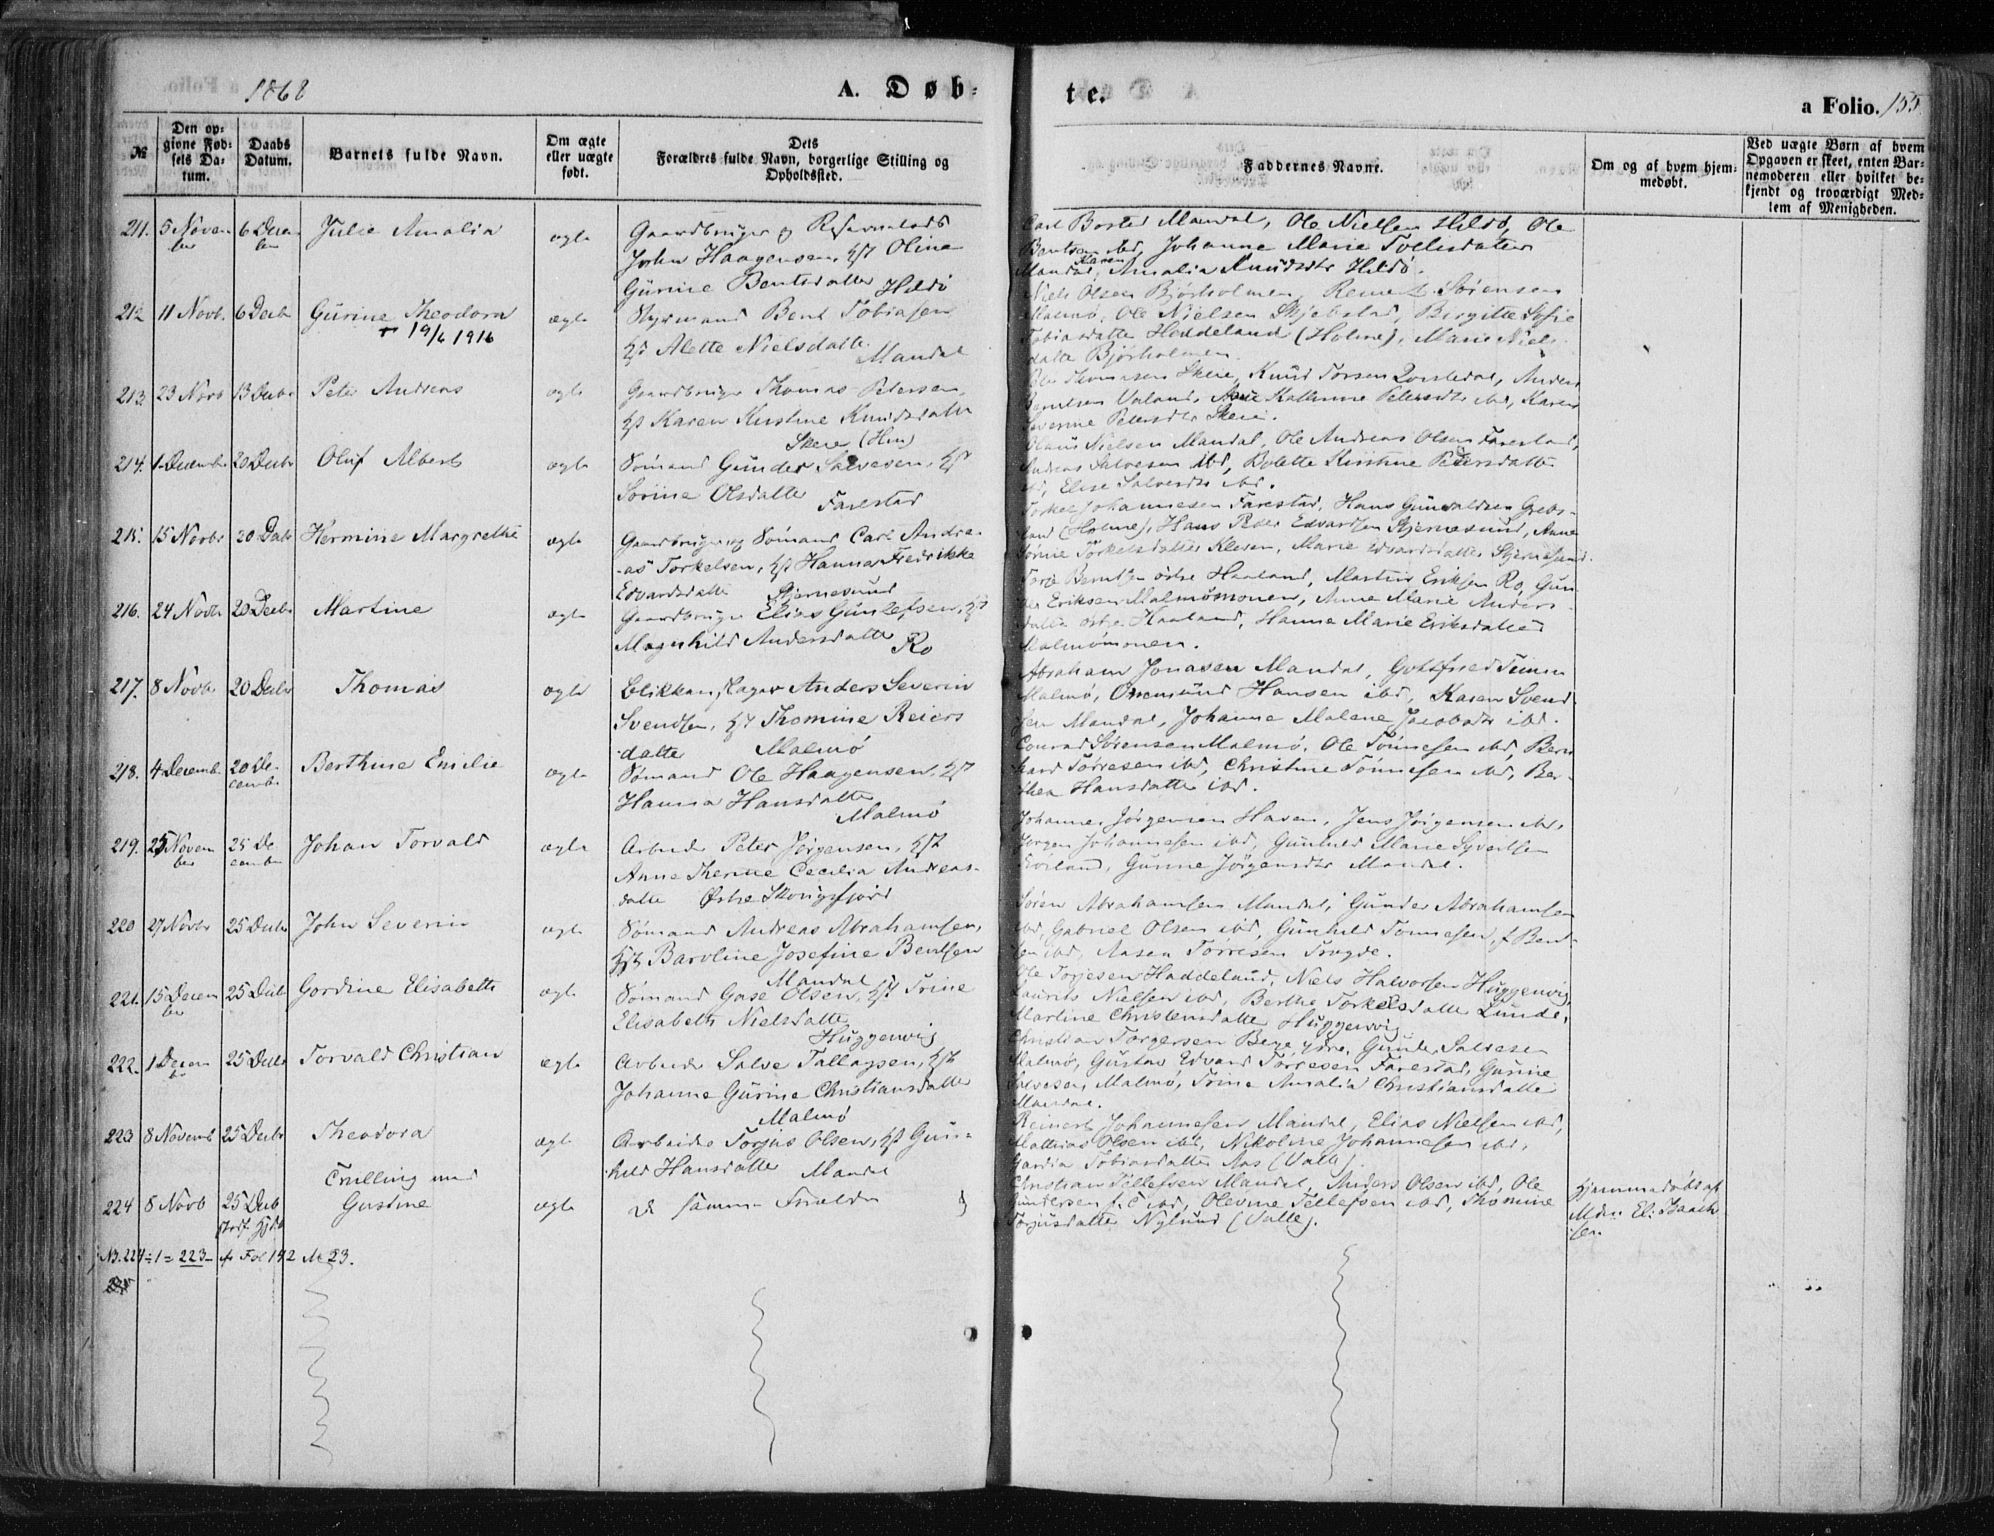 1868
A. Døb-
te.
a Folio. 155
№
Den op-
givne Fød-
sels Da-
tum.
Daabs
Datum.
Barnets fulde Navn.
Om ægte
eller uægte
født.
Dets
Forældres fulde Navn, borgerlige Stilling og
Opholdssted.
Faddernes Navne.
Om og af hvem hjem-
medøbt.
Ved uægte Børn af hvem
Opgaven er skeet, enten Bar-
nemoderen eller hvilket be-
kjendt og troværdigt Med-
lem af Menigheden.
211. 5 Novem
ber 6 Decem
ber Julie Amalia ægte Gaardbruger og
John Haagensen, Hst Oline
Gurine Bentsdatter Hildø
Mandal, Ole Nielsen Hildø, Ole
Johanne Marie
Mandal, Karen Amalia Knudsdtr Hildø.
212 11 Novb. 6 Decbr Gurine Theodora
+ 19/6 1916 ægte Styrmand Bent Tobiasen
Hst Alette Nielsdatter Mandal
Niels Olsen Bjørholmen, Sørensen
Malmø, Ole Nielsen Birgitte Sofie
Tobiasdatter Haddeland (Holme), Marie Niels
datter Bjørholmen.
213. 23 Novb 13 Decbr Peter Andreas ægte Gaardbruger Thomas Petersen,
Hst Karen Kirstine Knudsdatter
Skeie (Hm)
Thomasen Skeie, Knud Anders
Valand, Kathrine Petersdtr ibd, Karen
Severine Petersdtr Skeie.
214. 1 Decembr 20 Decbr Oluf Albert ægte Sømand Gunder Salvesen, Hst
Sørine Olsdatter Farestad
Nielsen Mandal, Ole Andreas Olsen Farestad,
Andreas Salvesen ibd, Bolette Kirstine Petersdatter
Elise Salvesdtr ibd.
215. 15 Novbr 20 Decbr Hermine Margrethe ægte Gaardbruger og Sømand Carl Andre-
-as Torkelsen, Hst Hanna Fredrikke
Edvardsdatter Stjernesund
Torkel Johannesen Farestad, Hans Gunvaldsen Grebs-
tad (Holme), Hans Peter Edvardsen Stjernesund, Anne
Torkelsdatter Kleven, Marie Edvardsdatter Stjernesund.
216. 24 Novbr 20 Decbr Martine ægte Gaardbruger Elias Gunlefsen, Hst
Magnhild Andersdatter Ro
Berntsen østre Haaland, Martin Eriksen Ro, Gun-
der Eriksen Malmømonen, Anne Marie Anders-
datter østre Haaland, Hanne Marie Eriksdatter
Malmømonen.
217. 8 Novbr 20 Decbr Thomas ægte Blikkenslager Anders Severin
Svendsen, Hst Thomine Reiers
datter Malmø
Abraham Jonasen Mandal, Gottfried
Malmø, Hansen ibd, Karen Svend
sen Mandal, Johanne Malene Jacobsdtr ibd.
218. 4 Decemb. 20 De-
cembr Berthine Emilie ægte Sømand Ole Haagensen, Hst
Hanna Hansdatter
Malmø
Conrad Sørensen Malmø, Ole Tønnesen ibd, Bern
hard Tørresen ibd, Christine Tønnesen ibd, Ber-
thea Hansdatter ibd.
219. 25 Novem
ber 25 De
cember Johan Torvald ægte Arbeider Peter Jørgensen, Hst
Anne Therese Cecilia Andreas-
datter Østre Skogsfjord
Johannes Jørgensen Haven, Jens Jørgensen ibd,
Jørgen Johannesen ibd, Gunhild Marie Syvertsen
Gurine Jørgensdtr Mandal.
220 27 Novbr 25 Decbr John Severin ægte Sømand Andreas Abrahamsen,
Hst Baroline Josefine Bentsen
Mandal
Søren Abrahamsen Mandal, Gunder Abrahamsen
ibd, Gabriel Olsen ibd, Gunhild Tønnesen, f. Bent-
sen ibd, Aasen Tørresen
221. 15 Decem
ber 25 Decbr Gordine Elisabeth ægte Sømand Gase Olsen, Hst Trine
Elisabeth Nielsdatter
Huggenvig
Ole Torjesen Haddeland, Niels Halvorsen Huggenvig,
Laurits Nielsen ibd, Berthe Torkelsdatter Lunde,
Martine Christensdatter Huggenvig.
222. 1 Decem
ber 25 Decbr Torvald Christian ægte Arbeider Salve Tallagsen, Hst
Johanne Gurine Christiansdatter
Malmø
Christian Torgersen ydre, Gunder Salvesen
Malmø, Gustav Edvard Tørresen Farestad, Gurine
Salvesen Malmø, Trine Amalia Christiansdatter
Mandal.
223 8 Novemb 25 Decbr Theodora ægte Arbeider Torjus Olsen, Hst Gun-
hild Hansdatter Mandal
Reinert Johannesen Mandal, Elias Nielsen ibd,
Mathias Olsen ibd, Nikoline Johannesen ibd,
Tobiasdatter Aas (Valle).
Tvilling med
224 8 Novb 25 Decb
Gustine ægte De samme Forældre
Christian Tellefsen Mandal, Anders Olsen ibd, Ole
Gundersen ibd, Olevine Tellefsen ibd, Thomine
Torjusdatter Nylund (Valle).
Hjemmedøbt af
Mdm El. Isaach
sen.
NB. 224 ÷ 1 = 223 - cfr Fol 142 № 23.